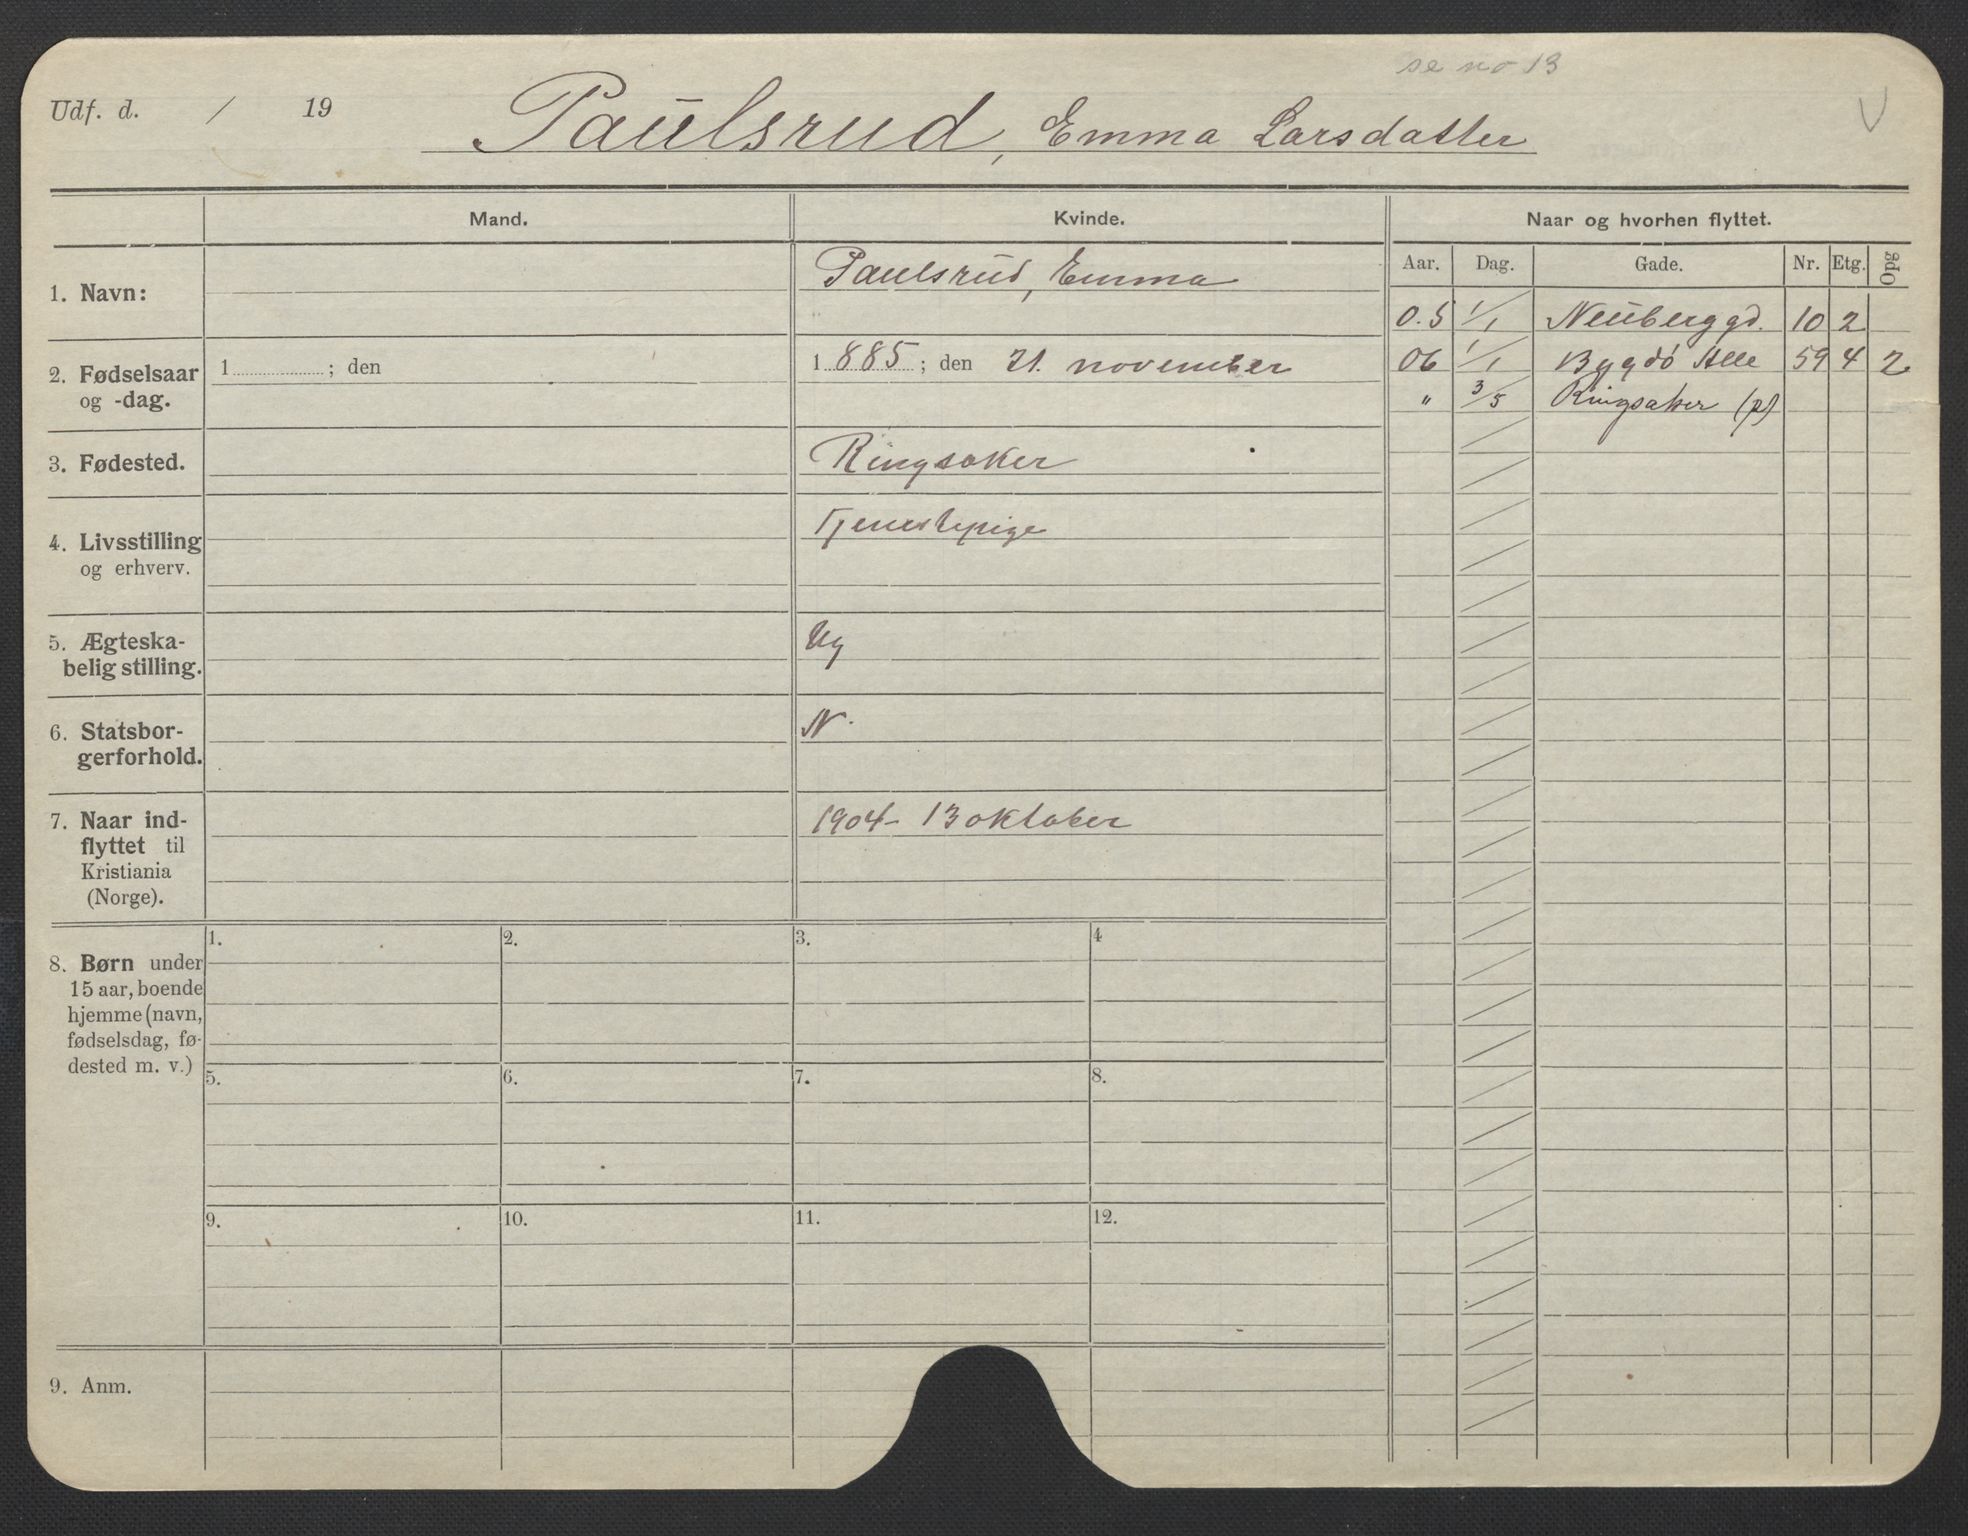 se no 13
Udf. d. / 19
Paulsrud, Emma Larsdatter
V
Mand.
Kvinde.
Naar og hvorhen flyttet.
Aar. Dag. Gade. Nr. Etg. Opg
1. Navn:
Paulsrud, Emma
05 1/1 Neuberggd. 10 2
2. Fødselsaar
og -dag.
1 ; den
1885 ; den 21. november
06 1/1 Bygdö Alle 59 4 2
" 3/5 Ringsaker (p)
3. Fødested.
Ringsaker
4. Livsstilling
og erhverv.
Tjenestepige
5. Ægteska-
belig stilling.
Ug
6. Statsbor-
gerforhold.
N.
7. Naar ind-
flyttet til
Kristiania
(Norge).
1904 - 13 oktober
8. Børn under
15 aar, boende
hjemme (navn,
fødselsdag, fø-
dested m. v.)
1. 2. 3. 4
5. 6. 7. 8.
9. 10. 11. 12.
9. Anm.